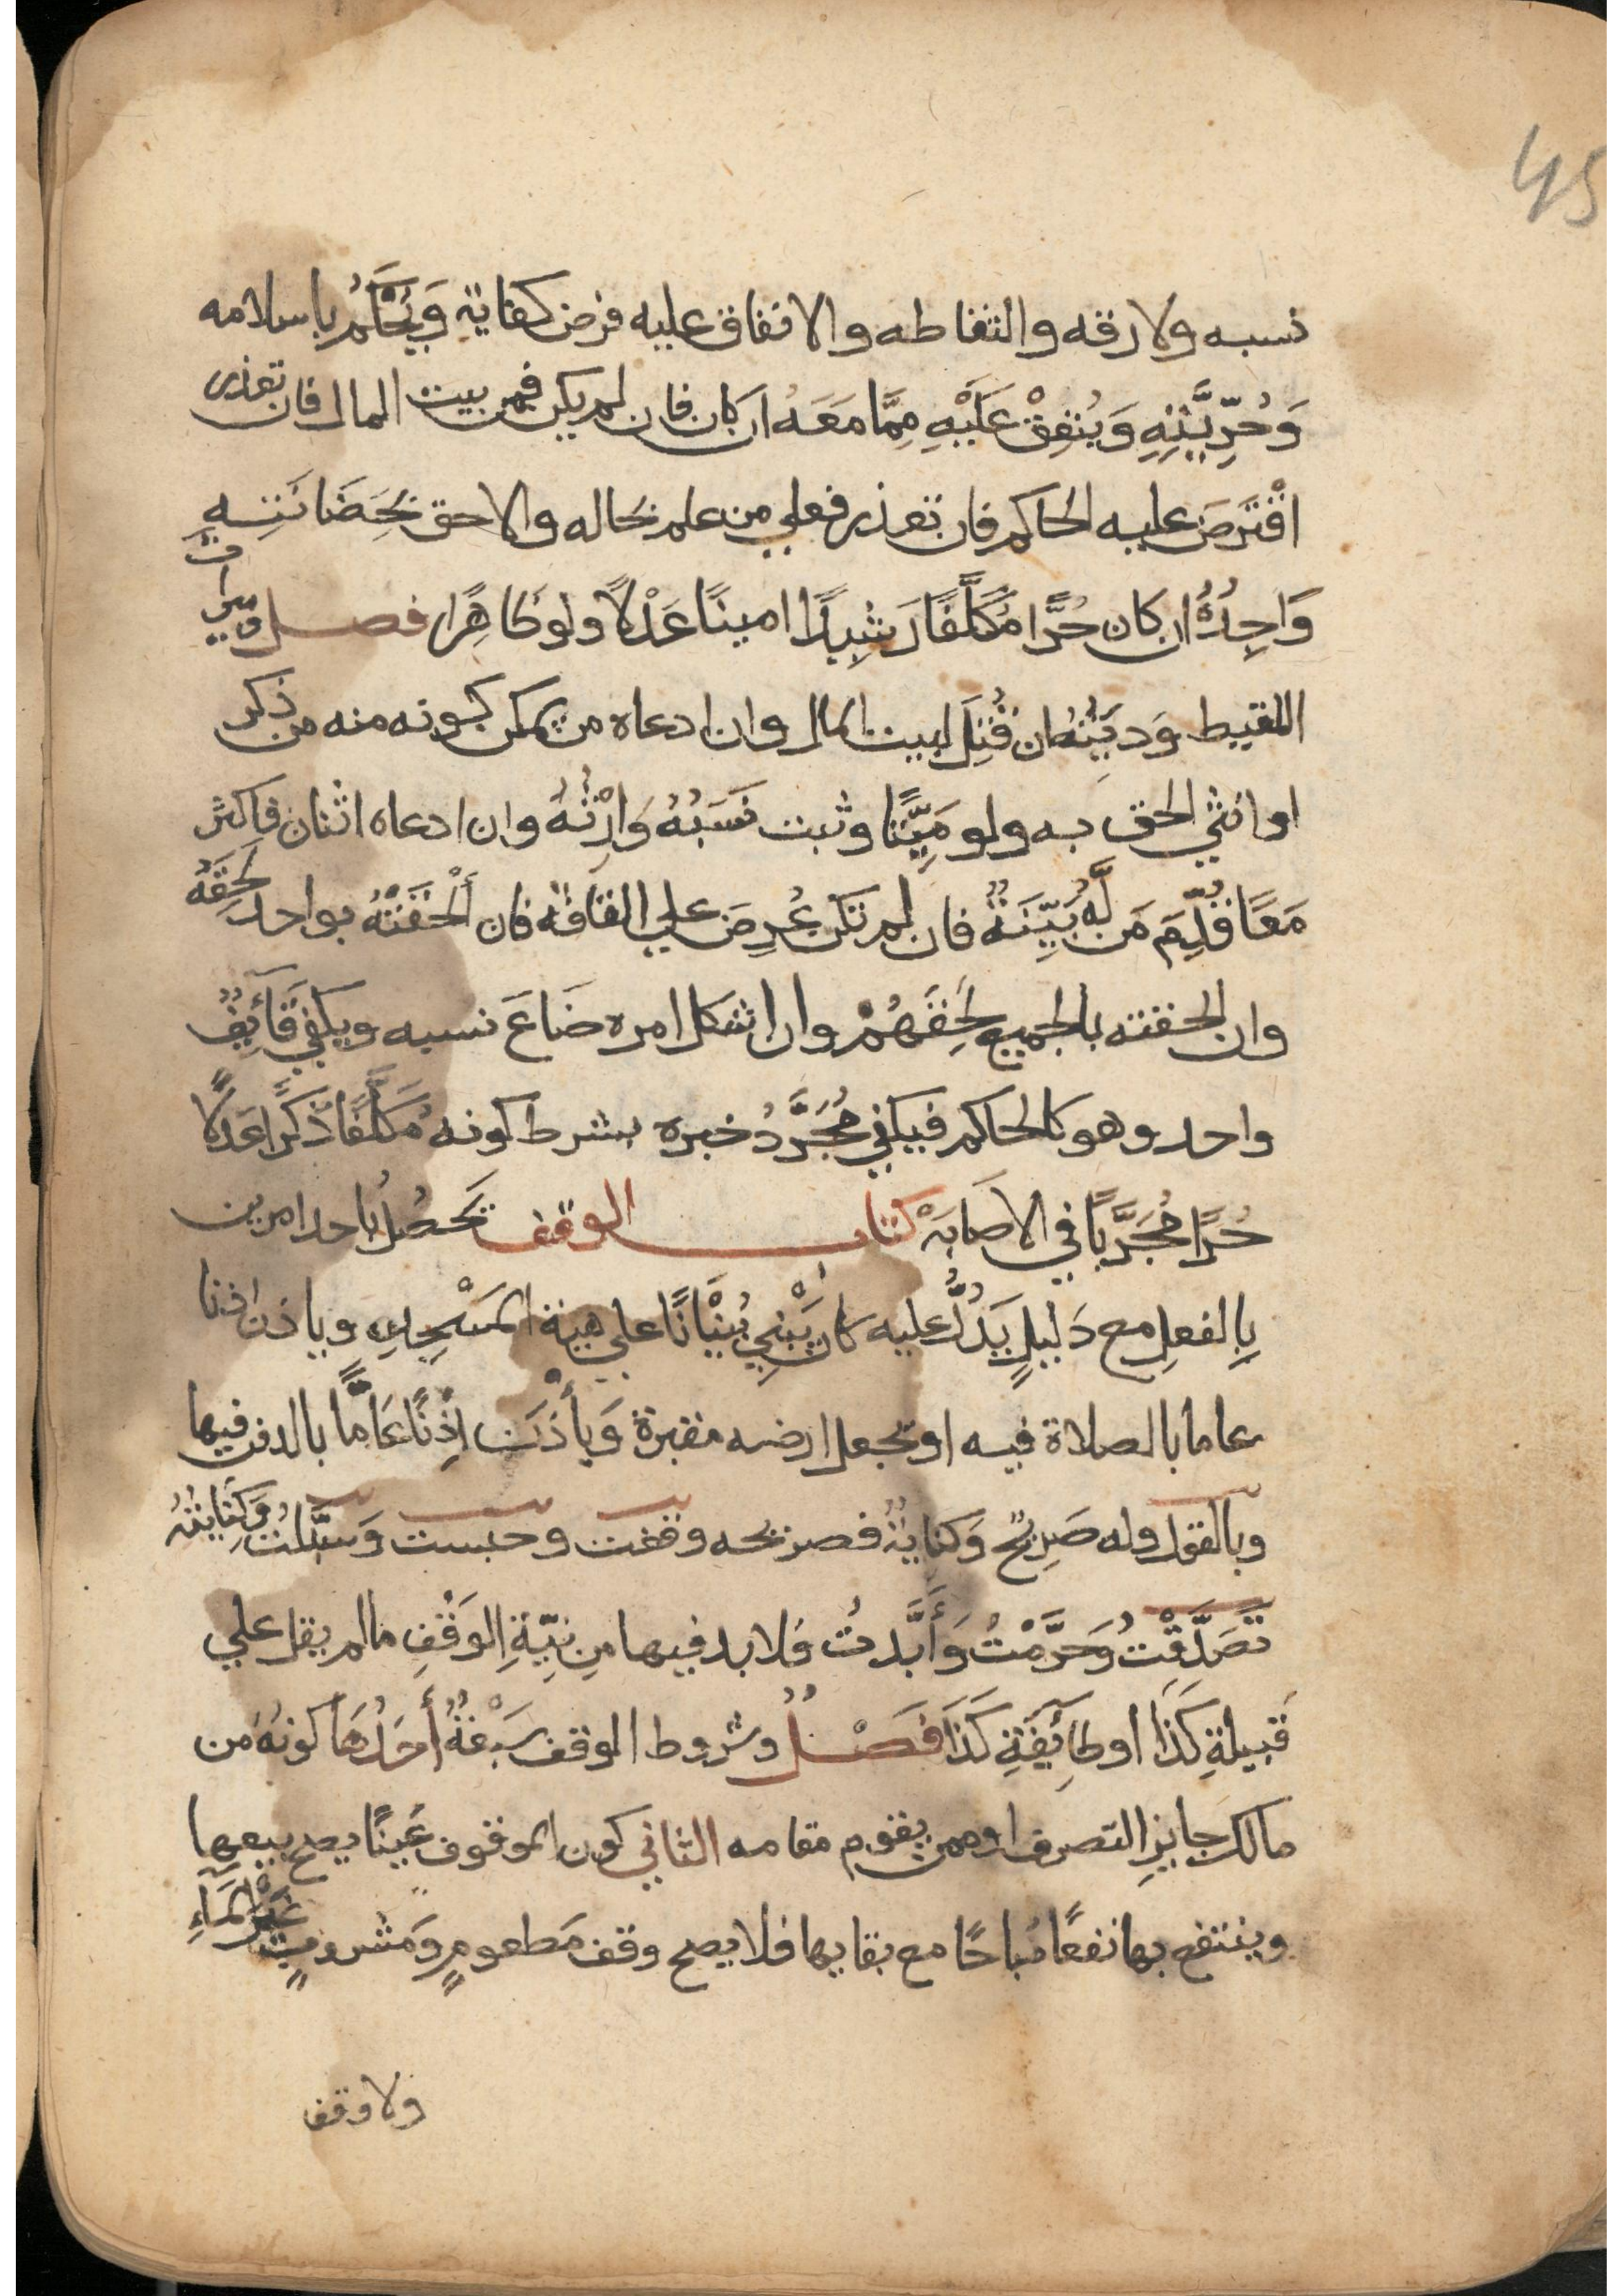 45
نسبه ولا رقه والتقاطه والانفاق عليه فرض كفاية وَيُحْكَمُ باسلامه
وَحُرِّيَّتِهِ وَيُنْفِقْ عَلَيْهِ مِمَّا مَعَهُ ان كان فان لم يكن فمن بيت المال فان تعذر
اقْتَرَضَ عليه الحاكم فان تعذر فعلي من علم بحاله والاحق بِحَضَانَتِهِ
وَاجِدُهُ ان كان حُرًّا مُكَلَّفًا رَشِيدًا امينًا عَدْلًا ولو ظاهِرًا فصل وميراث
اللقيط وَدِيَتُهُ ان قُتِلَ لبيت المال وان ادعاه من يمكن كونه منه من ذكر
او انثي الحق به ولو مَيِّتًا وثبت نَسَبُهُ وَارِثُهُ وان ادعاه اثنان فاكثر
مَعًا قُدِّمَ مَن لَهُ بَيِّنَةٌ فان لم تكن عُرِضَ علي القافة فان أَلْحَقَتْهُ بواحد لَحِقَهُ
وان الحقته بالجميع لَحِقَهُمْ وان اشكل امره ضَاعَ نسبه ويكفي قَائِفٌ
واحد وهو كالحاكم فيكفي مُجَرَّدُ خبره بشرط كونه مُكَلَّفًا ذَكَرًا عَدْلًا
حُرًّا مُجَرَّبًا في الاصَابَةْ كتاب الوقف تحصُلُ باحد امرين
بِالفعلِ مع دَليلٍ يَدُلُّ عليه كان يَبْنِي بُنْيَانًا علي هيئة المَسْجِدِ وياذن اذنا
عاما بالصلاة فيه او تجعل ارضه مقبرة وَيأْذَن إِذْنًا عَامًّا بالدفن فيها
وبالقول وله صَرِيحٌ وَكنايةٌ فصريحه وقفت وحبست وَسَبَّلتُ وَكِنَايَتُهُ
تَصَدَّقْتُ وَحَرَّمْتُ وَأَبَّدتُ فلا بد فيها مِن نِيَّةِ الوَقْفِ ما لم يقل علي
قَبيلةِ كَذَا او طَائِفَةِ كَذَا فَصْلٌ وشروط الوقف سَبْعَةٌ أَحَدُهَا كونُهُ من
مالك جايزِ التصرف او ممن يقوم مقامه الثاني كون الموقوف عَينًا يصح بيعها
وينتفع بها نفعًا مُباحًا مع بقايها فلا يصح وقف مَطعومٍ وَمَشروبٍ غَيْرَ المَاءِ
ولا وقف